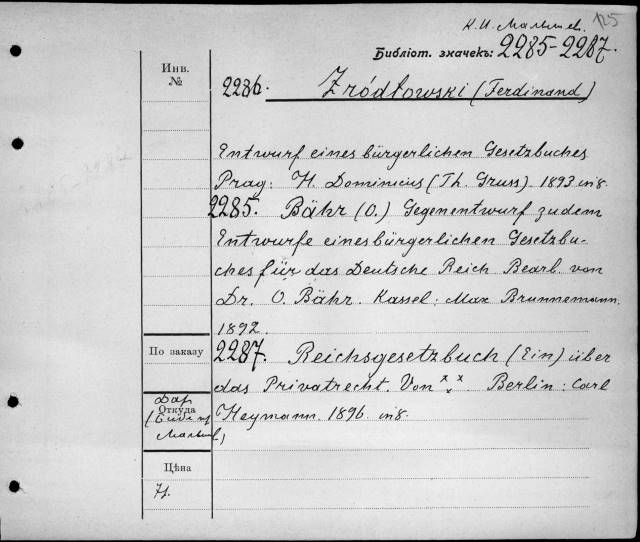 125
К. И. Малышев.
Библіот. значекъ: 2285-2287.
Инв.
№
2286. Źródłowski (Ferdinand)
Entwurf eines bürgerlichen Gesetzbuches
Prag: H. Dominicus (Th. Gruss). 1893 in 8.
2285. Bähr (O.) Gegenentwurf zu dem
Entwurfe eines bürgerlichen Gesetzbu-
ches für das Deutsche Reich Bearb. von
Dr. O. Bähr. Kassel: Max Brunnemann.
1892.
По заказу
2287. Reichsgesetzbuch (Ein) über
das Privatrecht. Von xxx Berlin: Carl
Heymann. 1896. in 8.
Дар
Откуда
Малыш
Цѣна
Н.